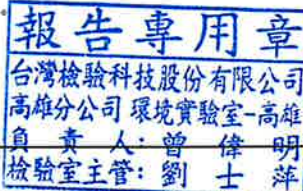 報告專用章
台灣檢驗科技股份有限公司
高雄分公司 環境實驗室-高雄
負責人:曾偉明
檢驗室主管:劉士萍